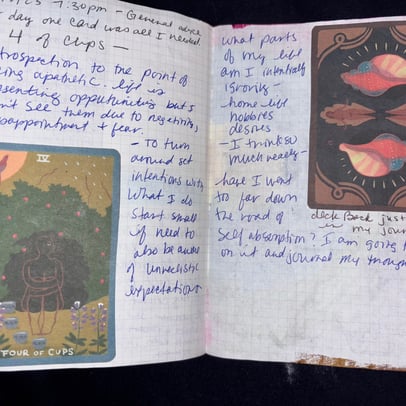 7:30pm - General advice
day one card was all I needed.
4 of cups -
trospection to the point of
ing apathetic. life is
esenting opportunities but I
n't see them due to negativity,
sappointment + fear.
- To turn
around set
intentions with
what I do
Start small
if need to
also be aware
of unrealistic
expectations
IV
FOUR OF CUPS
what parts
of my life
am I intentionally
ignoring -
home life
hobbies
desires
- I think so
much really -
have I went
too far down
the road of
self absorption? I am going t
on it and journal my though
deck Back just
in my jour